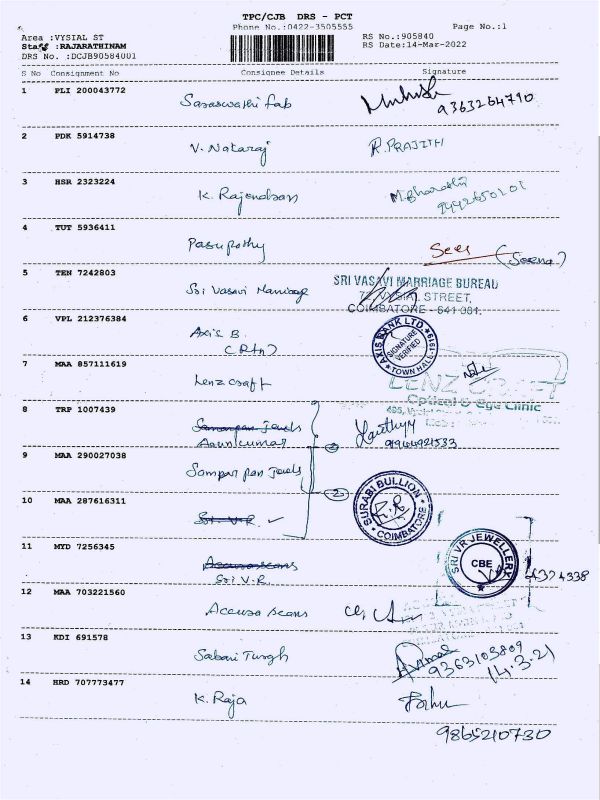 TPC/CJB DRS - PCT
Phone No.:0422-3505555
Page No.:1
Area :VYSIAL ST
Staff :RAJARATHINAM
DRS No. :DCJB90584001
RS No.:905840
RS Date:14-Mar-2022
S No Consignment No Consignee Details Signature
1 PLI 200043772
Saraswathi fab
9363264790
2 PDK 5914738
V. Nataraj R. PRAJITH
3 HSR 2323224
K. Rajendran M. Bharathi
9442650201
4 TUT 5936411
Pasupathy
(Seena)
5 TEN 7242803
Sri Vasavi Marriage
SRI VASAVI MARRIAGE BUREAU
72, VYSIAL STREET,
COIMBATORE - 641 001.
6 VPL 212376384
Axis B.
(Rtn)
AXIS BANK LTD
SIGNATURE VERIFIED
TOWN HALL-1619
7 MAA 857111619
Lenz craft
LENZ CRAFT
Optical & Eye Clinic
8 TRP 1007439
Arun kumar
9 MAA 290027038
Sampar pan Jewels
2
10 MAA 287616311
Sri V.R.
SURABI BULLION
COIMBATORE
11 MYD 7256345
Sri V.R.
SRI VR JEWELLERY
CBE
4374338
12 MAA 703221560
Accusa scans
13 KDI 691578
Sabari Turgh
9363103809
14.3.21
14 HRD 707773477
K. Raja
9865210730